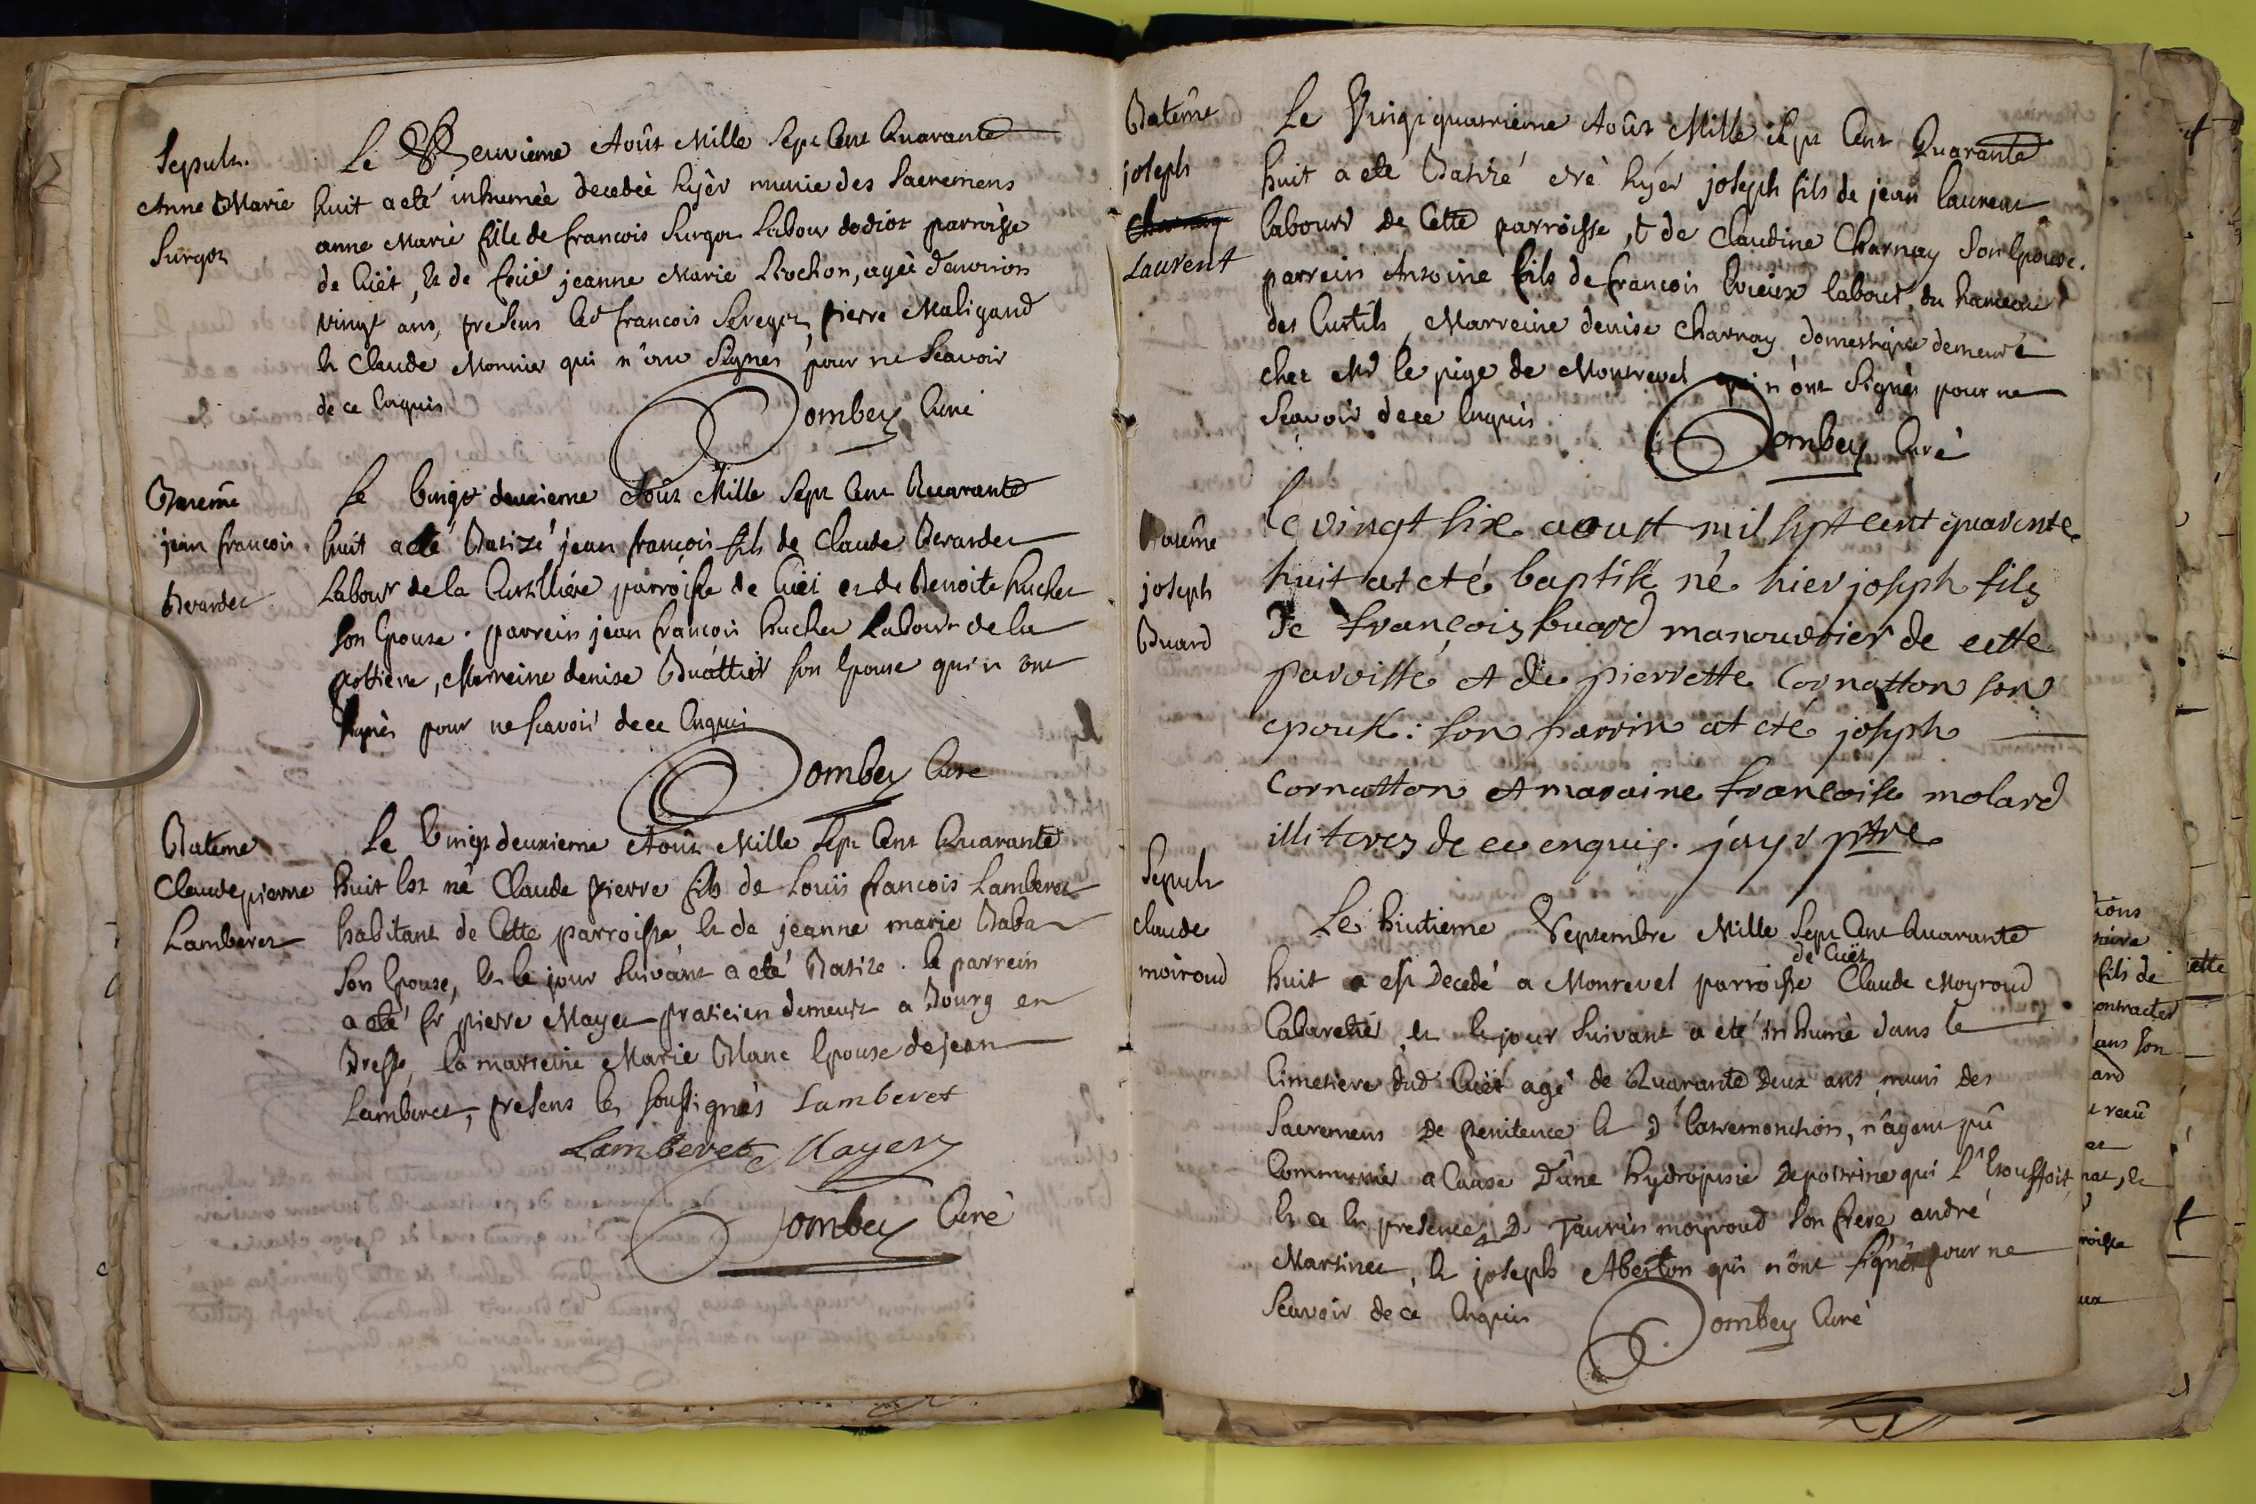 Sepult.
Anne Marie
Surgot
Le Neuvieme Août Mille Sept Cent Quarante
huit a eté inhumée decedée hyèr munie des Sacremens
anne Marie fille de francois Surgot Labour parroisse
de Cüet, et de feüe jeanne Marie Rochon, agée d'environ
vingt ans, presens led francois Seregot, pierre Maligand
et Claude Monnier qui n'ont Signés pour ne Scavoir
de ce Enquis
Dombey Curé
Batême
jean francois
Berardet
Le Vingt deuxieme Août Mille Sept Cent Quarante
huit a eté Batizé jean francois fils de Claude Berardet
Labour de la parroisse de Cüet et de Benoite huchet
son Epouse. parrein jean francois huchet Labour de la
pottiere, Marreine denise Buattier son Epouse qui n'ont
Signés pour ne Scavoir de ce Enquis
Dombey Curé
Bateme
Claude pierre
Lamberet
Le Vingt deuxieme Août Mille Sept Cent Quarante
huit Est né Claude pierre fils de Louis francois Lamberet
habitant de Cette parroisse, et de jeanne marie Baba
son Epouse, et le jour Suivant a eté Batize. le parrein
a eté Sr pierre Mayet praticien demeurt a Bourg en
Bresse, la marreine Marie Blanc Epouse de jean
Lamberet, presens les soussignés Lamberet
Lamberet Mayer
Dombey Curé
Batême
joseph
Charnay
Laurent
Le Vingt quatrieme Août Mille Sept Cent Quarante
huit a eté Batizé né hyer joseph fils de jean laurent
labourr de Cette parroisse, et de Claudine Charnay Son Epouse.
parrein Antoine fils de francois labour, du hameau
des Curtils, Marreine denise Charnay domestique demeurt
chez Mr le pige de Montrevel qui n'ont Signés pour ne
Scavoir de ce Enquis
Dombey Curé
Batême
joseph
Buard
le vingt six aoust mil sept cent quarente
huit at eté baptisé né hier joseph fils
de françois buard manouvrier de cette
paroisse et de pierrette Cornatton son
epouse: son parrin at eté joseph
Cornatton et maraine françoise molard
illiteres de ce enquis. jayr ptre
Sepult
claude
moiroud
Le huitieme Septembre Mille Sept Cent Quarante
de Cüet
huit a est Decedé a Monrevel parroisse Claude Moyroud
Cabaretié, et le jour Suivant a eté inhumé dans le
Cimetiere dud Cüet agé de Quarante Deux ans muni des
Sacremens De penitence et D'Extremonction, n'ayant pû
Communié a Cause D'une hydropisie De poitrine qui L'Etouffoit,
et a en presence De Taurin moyroud Son frere, andré
Martinet, et joseph Aberton qui n'ont signé pour ne
Scavoir de ce Enquis
Dombey Curé
fils de
ontracter
ans Son
and
t reçû
et
oisse
ette